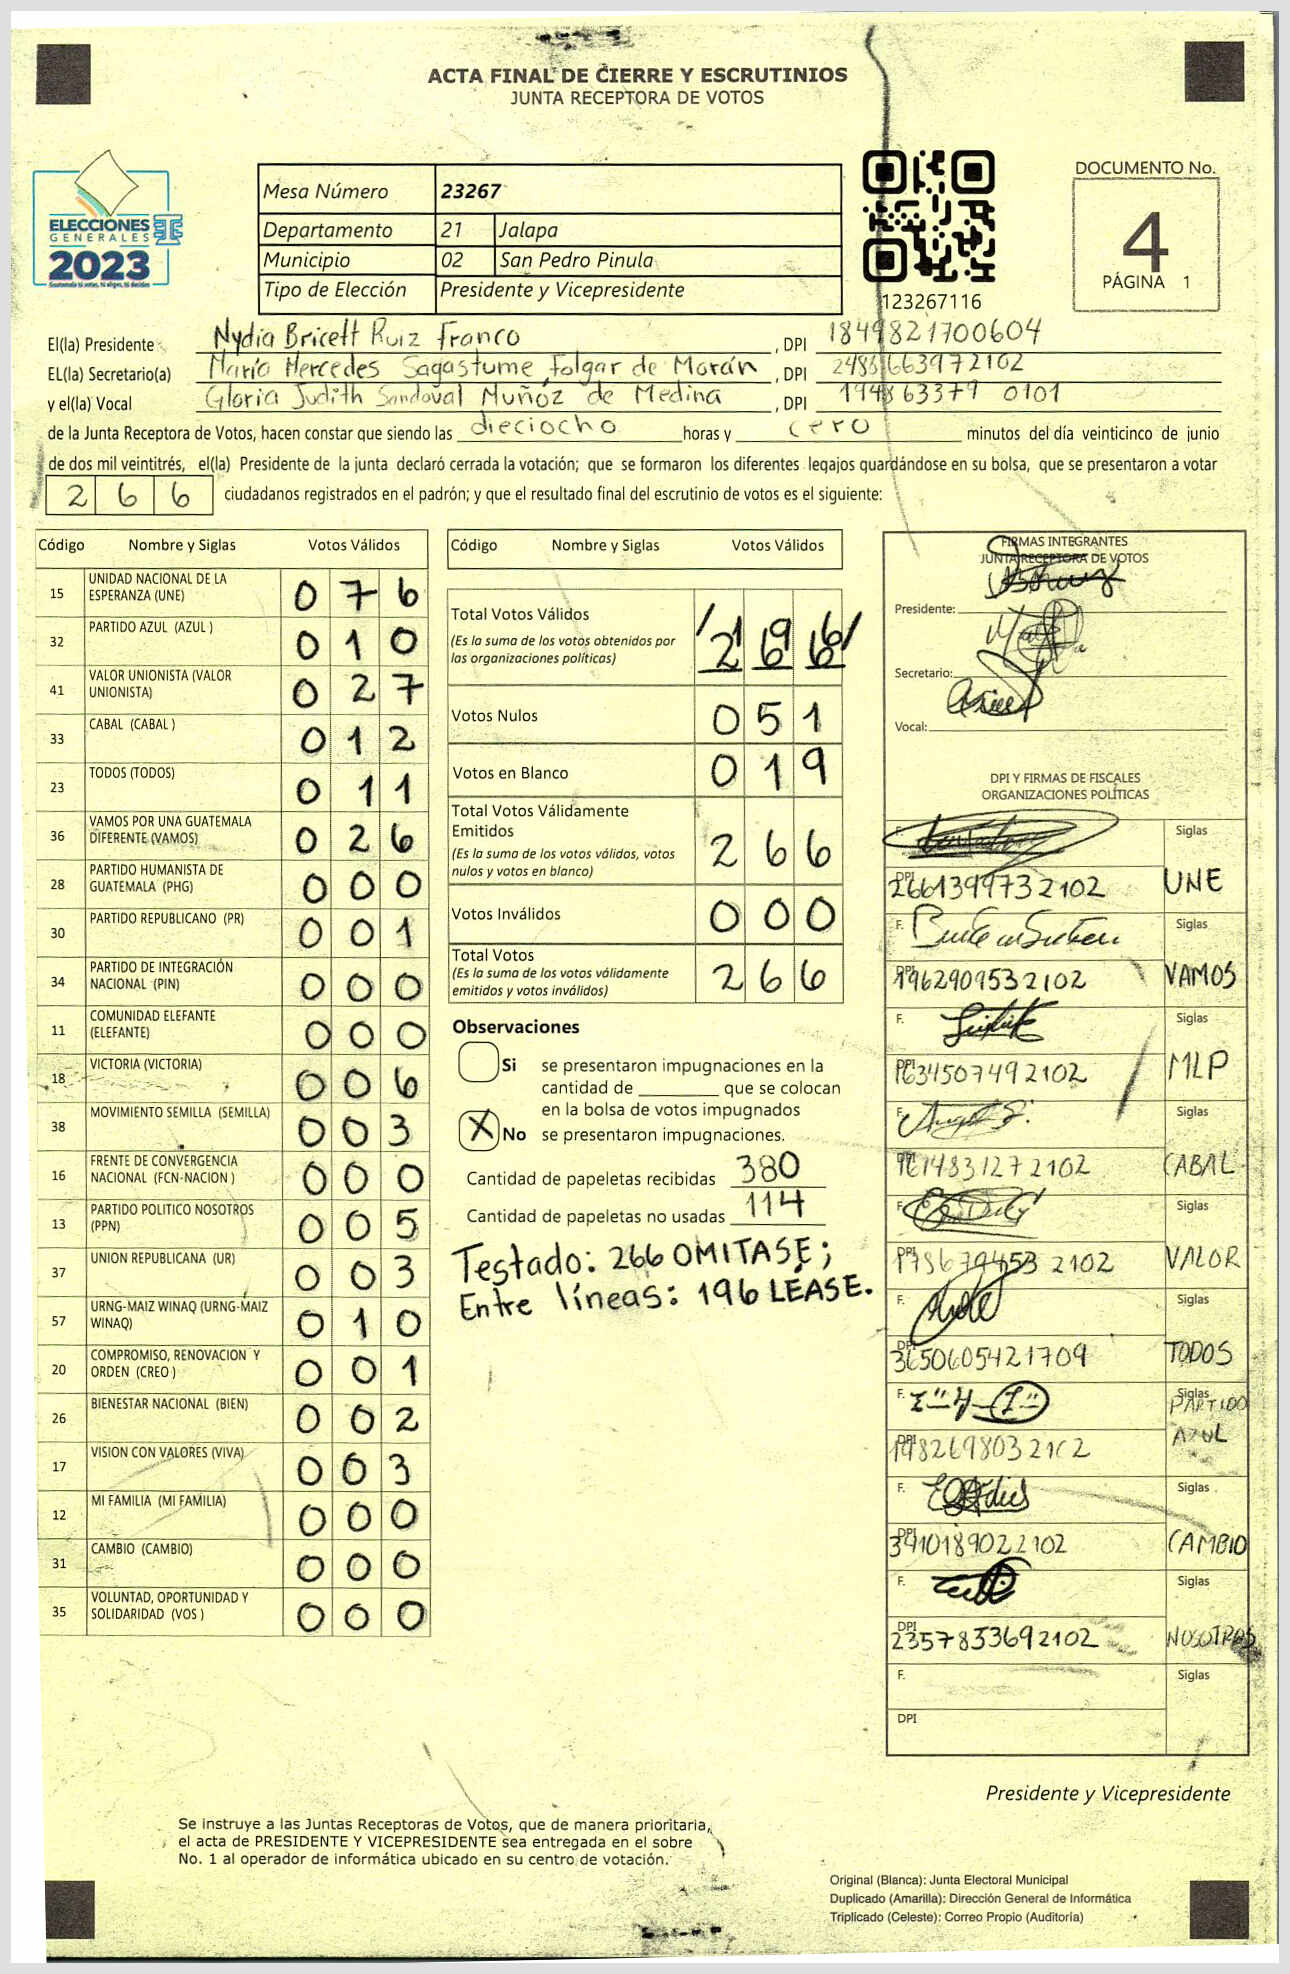 ACTA FINAL DE CIERRE Y ESCRUTINIOS
JUNTA RECEPTORA DE VOTOS
ELECCIONES
GENERALES
2023
Guatemala tú votas, tú eliges, tú decides
Mesa Número 23267
Departamento 21 Jalapa
Municipio 02 San Pedro Pinula
Tipo de Elección Presidente y Vicepresidente
123267116
DOCUMENTO No.
4
PÁGINA 1
El(la) Presidente Nydia Bricett Ruiz Franco, DPI 1849821700604
EL(la) Secretario(a) María Mercedes Sagastume Folgar de Morán, DPI 2486663972102
y el(la) Vocal Gloria Judith Sandoval Muñoz de Medina, DPI 194863379 0101
de la Junta Receptora de Votos, hacen constar que siendo las dieciocho horas y cero minutos del día veinticinco de junio
de dos mil veintitrés, el(la) Presidente de la junta declaró cerrada la votación; que se formaron los diferentes legajos guardándose en su bolsa, que se presentaron a votar
266 ciudadanos registrados en el padrón; y que el resultado final del escrutinio de votos es el siguiente:
Código Nombre y Siglas Votos Válidos
15 UNIDAD NACIONAL DE LA ESPERANZA (UNE) 076
32 PARTIDO AZUL (AZUL ) 010
41 VALOR UNIONISTA (VALOR UNIONISTA) 027
33 CABAL (CABAL ) 012
23 TODOS (TODOS) 011
36 VAMOS POR UNA GUATEMALA DIFERENTE (VAMOS) 026
28 PARTIDO HUMANISTA DE GUATEMALA (PHG) 000
30 PARTIDO REPUBLICANO (PR) 001
34 PARTIDO DE INTEGRACIÓN NACIONAL (PIN) 000
11 COMUNIDAD ELEFANTE (ELEFANTE) 000
18 VICTORIA (VICTORIA) 006
38 MOVIMIENTO SEMILLA (SEMILLA) 003
16 FRENTE DE CONVERGENCIA NACIONAL (FCN-NACION ) 000
13 PARTIDO POLITICO NOSOTROS (PPN) 005
37 UNION REPUBLICANA (UR) 003
57 URNG-MAIZ WINAQ (URNG-MAIZ WINAQ) 010
20 COMPROMISO, RENOVACION Y ORDEN (CREO ) 001
26 BIENESTAR NACIONAL (BIEN) 002
17 VISION CON VALORES (VIVA) 003
12 MI FAMILIA (MI FAMILIA) 000
31 CAMBIO (CAMBIO) 000
35 VOLUNTAD, OPORTUNIDAD Y SOLIDARIDAD (VOS ) 000
Código Nombre y Siglas Votos Válidos
Total Votos Válidos /196/ 266
(Es la suma de los votos obtenidos por las organizaciones políticas)
Votos Nulos 051
Votos en Blanco 019
Total Votos Válidamente Emitidos 266
(Es la suma de los votos válidos, votos nulos y votos en blanco)
Votos Inválidos 000
Total Votos 266
(Es la suma de los votos válidamente emitidos y votos inválidos)
Observaciones
Si se presentaron impugnaciones en la
cantidad de ________ que se colocan
en la bolsa de votos impugnados
X No se presentaron impugnaciones.
Cantidad de papeletas recibidas 380
Cantidad de papeletas no usadas 114
Testado: 266 OMITASE;
Entre líneas: 196 LÉASE.
FIRMAS INTEGRANTES
JUNTA RECEPTORA DE VOTOS
Presidente:
Secretario:
Vocal:
DPI Y FIRMAS DE FISCALES
ORGANIZACIONES POLÍTICAS
F. Siglas
DPI 2661399732102 UNE
F. Siglas
DPI 1962909532102 VAMOS
F. Siglas
DPI 1634507492102 MLP
F. Siglas
DPI 1614831272102 CABAL
F. Siglas
DPI 1786794532102 VALOR
F. Siglas
DPI 3650605421709 TODOS
F. Siglas
DPI 1982698032102 PARTIDO AZUL
F. Siglas
DPI 3410189022102 CAMBIO
F. Siglas
DPI 2357833692102 NOSOTROS
F. Siglas
DPI
Presidente y Vicepresidente
Se instruye a las Juntas Receptoras de Votos, que de manera prioritaria,
el acta de PRESIDENTE Y VICEPRESIDENTE sea entregada en el sobre
No. 1 al operador de informática ubicado en su centro de votación.
Original (Blanca): Junta Electoral Municipal
Duplicado (Amarilla): Dirección General de Informática
Triplicado (Celeste): Correo Propio (Auditoría)